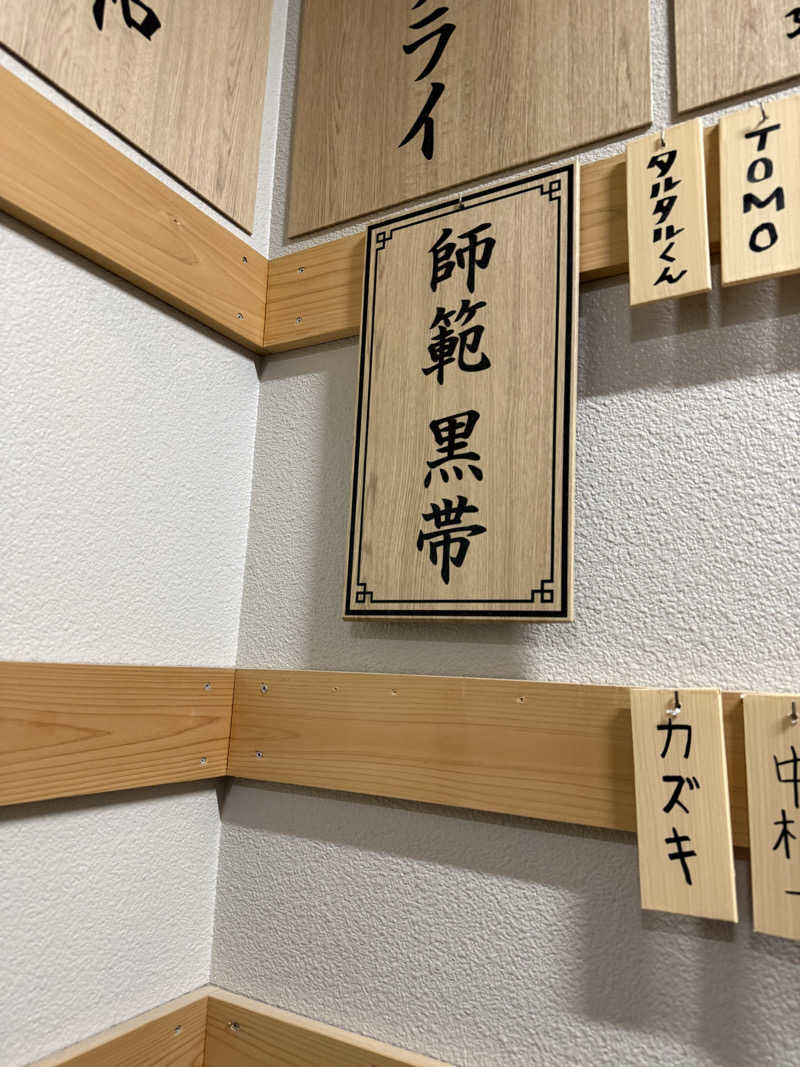 ライ
師範 黒帯
タルタルくん
TOMO
カズキ
中村